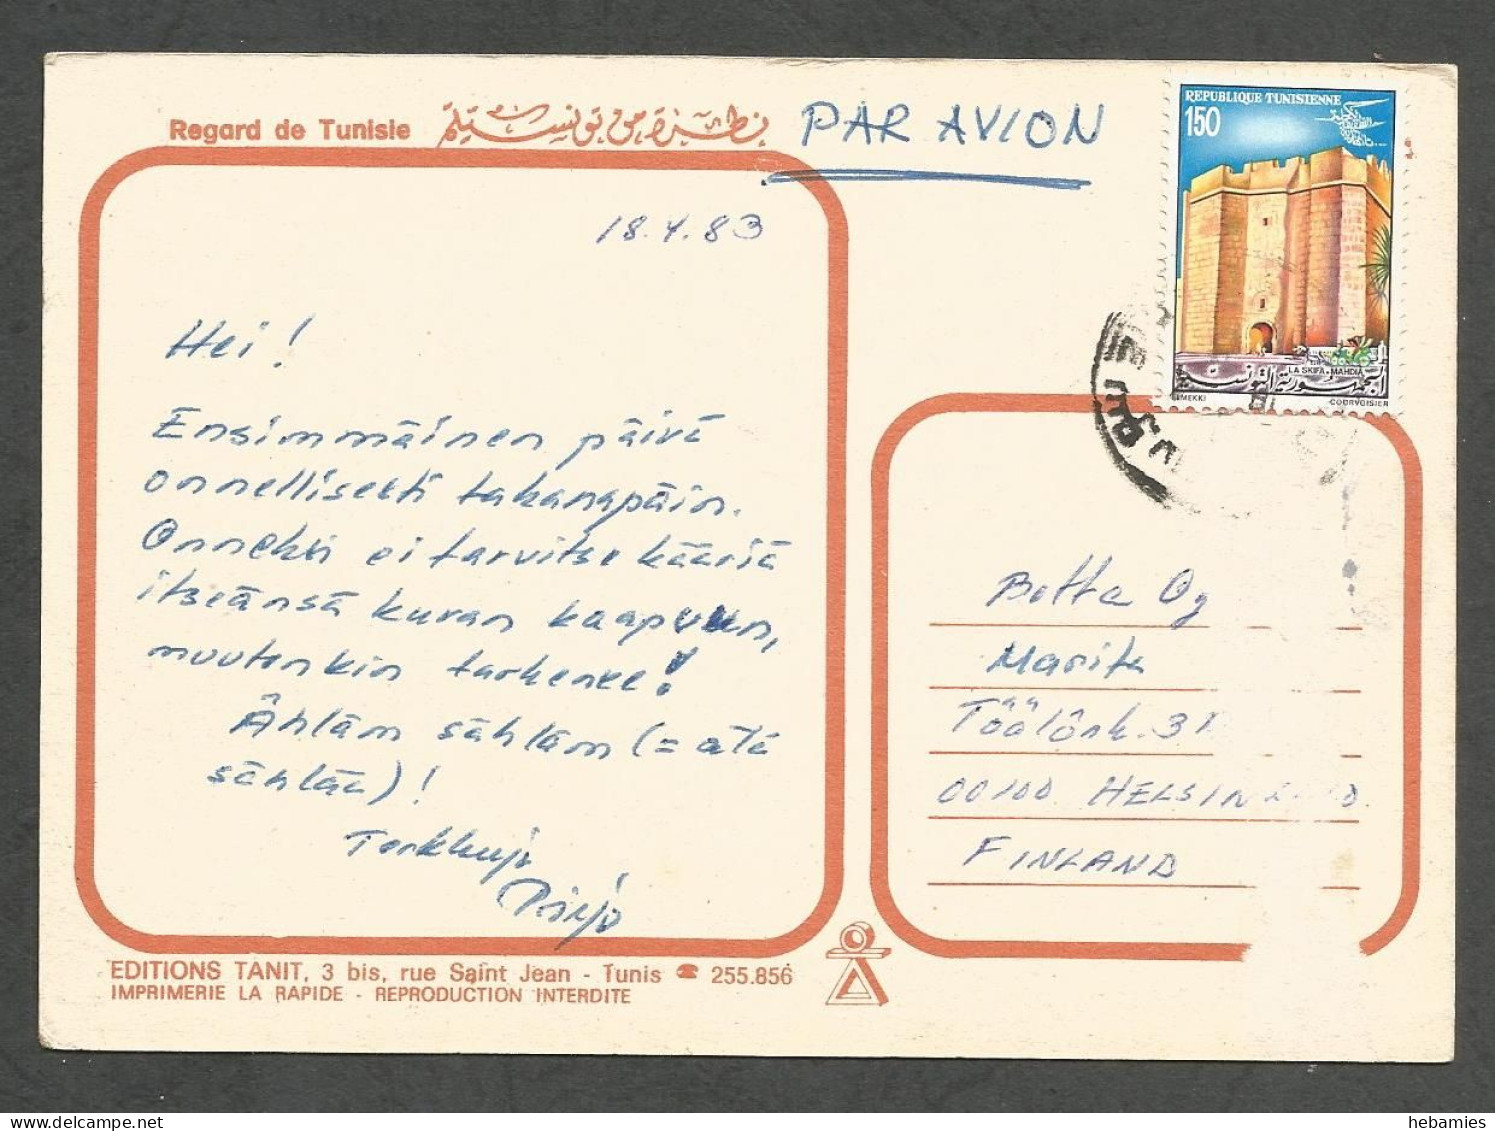 Regard de Tunisie
PAR AVION
REPUBLIQUE TUNISIENNE
150
LA SKIFA - MAHDIA
الجمهورية التونسية
ELMEKKI
COURVOISIER
18.4.83
Hei!
Ensimmäinen päivä
onnellisesti takanapäin.
Onneksi ei tarvitse kääriä
itseänsä kuvan kaapuun,
muutenkin tarkenee!
Ählän sählän (= älä
sählää)!
Terkkuja
Pirjo
Oy
Marita
Töölönk. 3
00100 HELSIN
FINLAND
EDITIONS TANIT, 3 bis, rue Saint Jean - Tunis ☎ 255.856
IMPRIMERIE LA RAPIDE - REPRODUCTION INTERDITE
hebamies